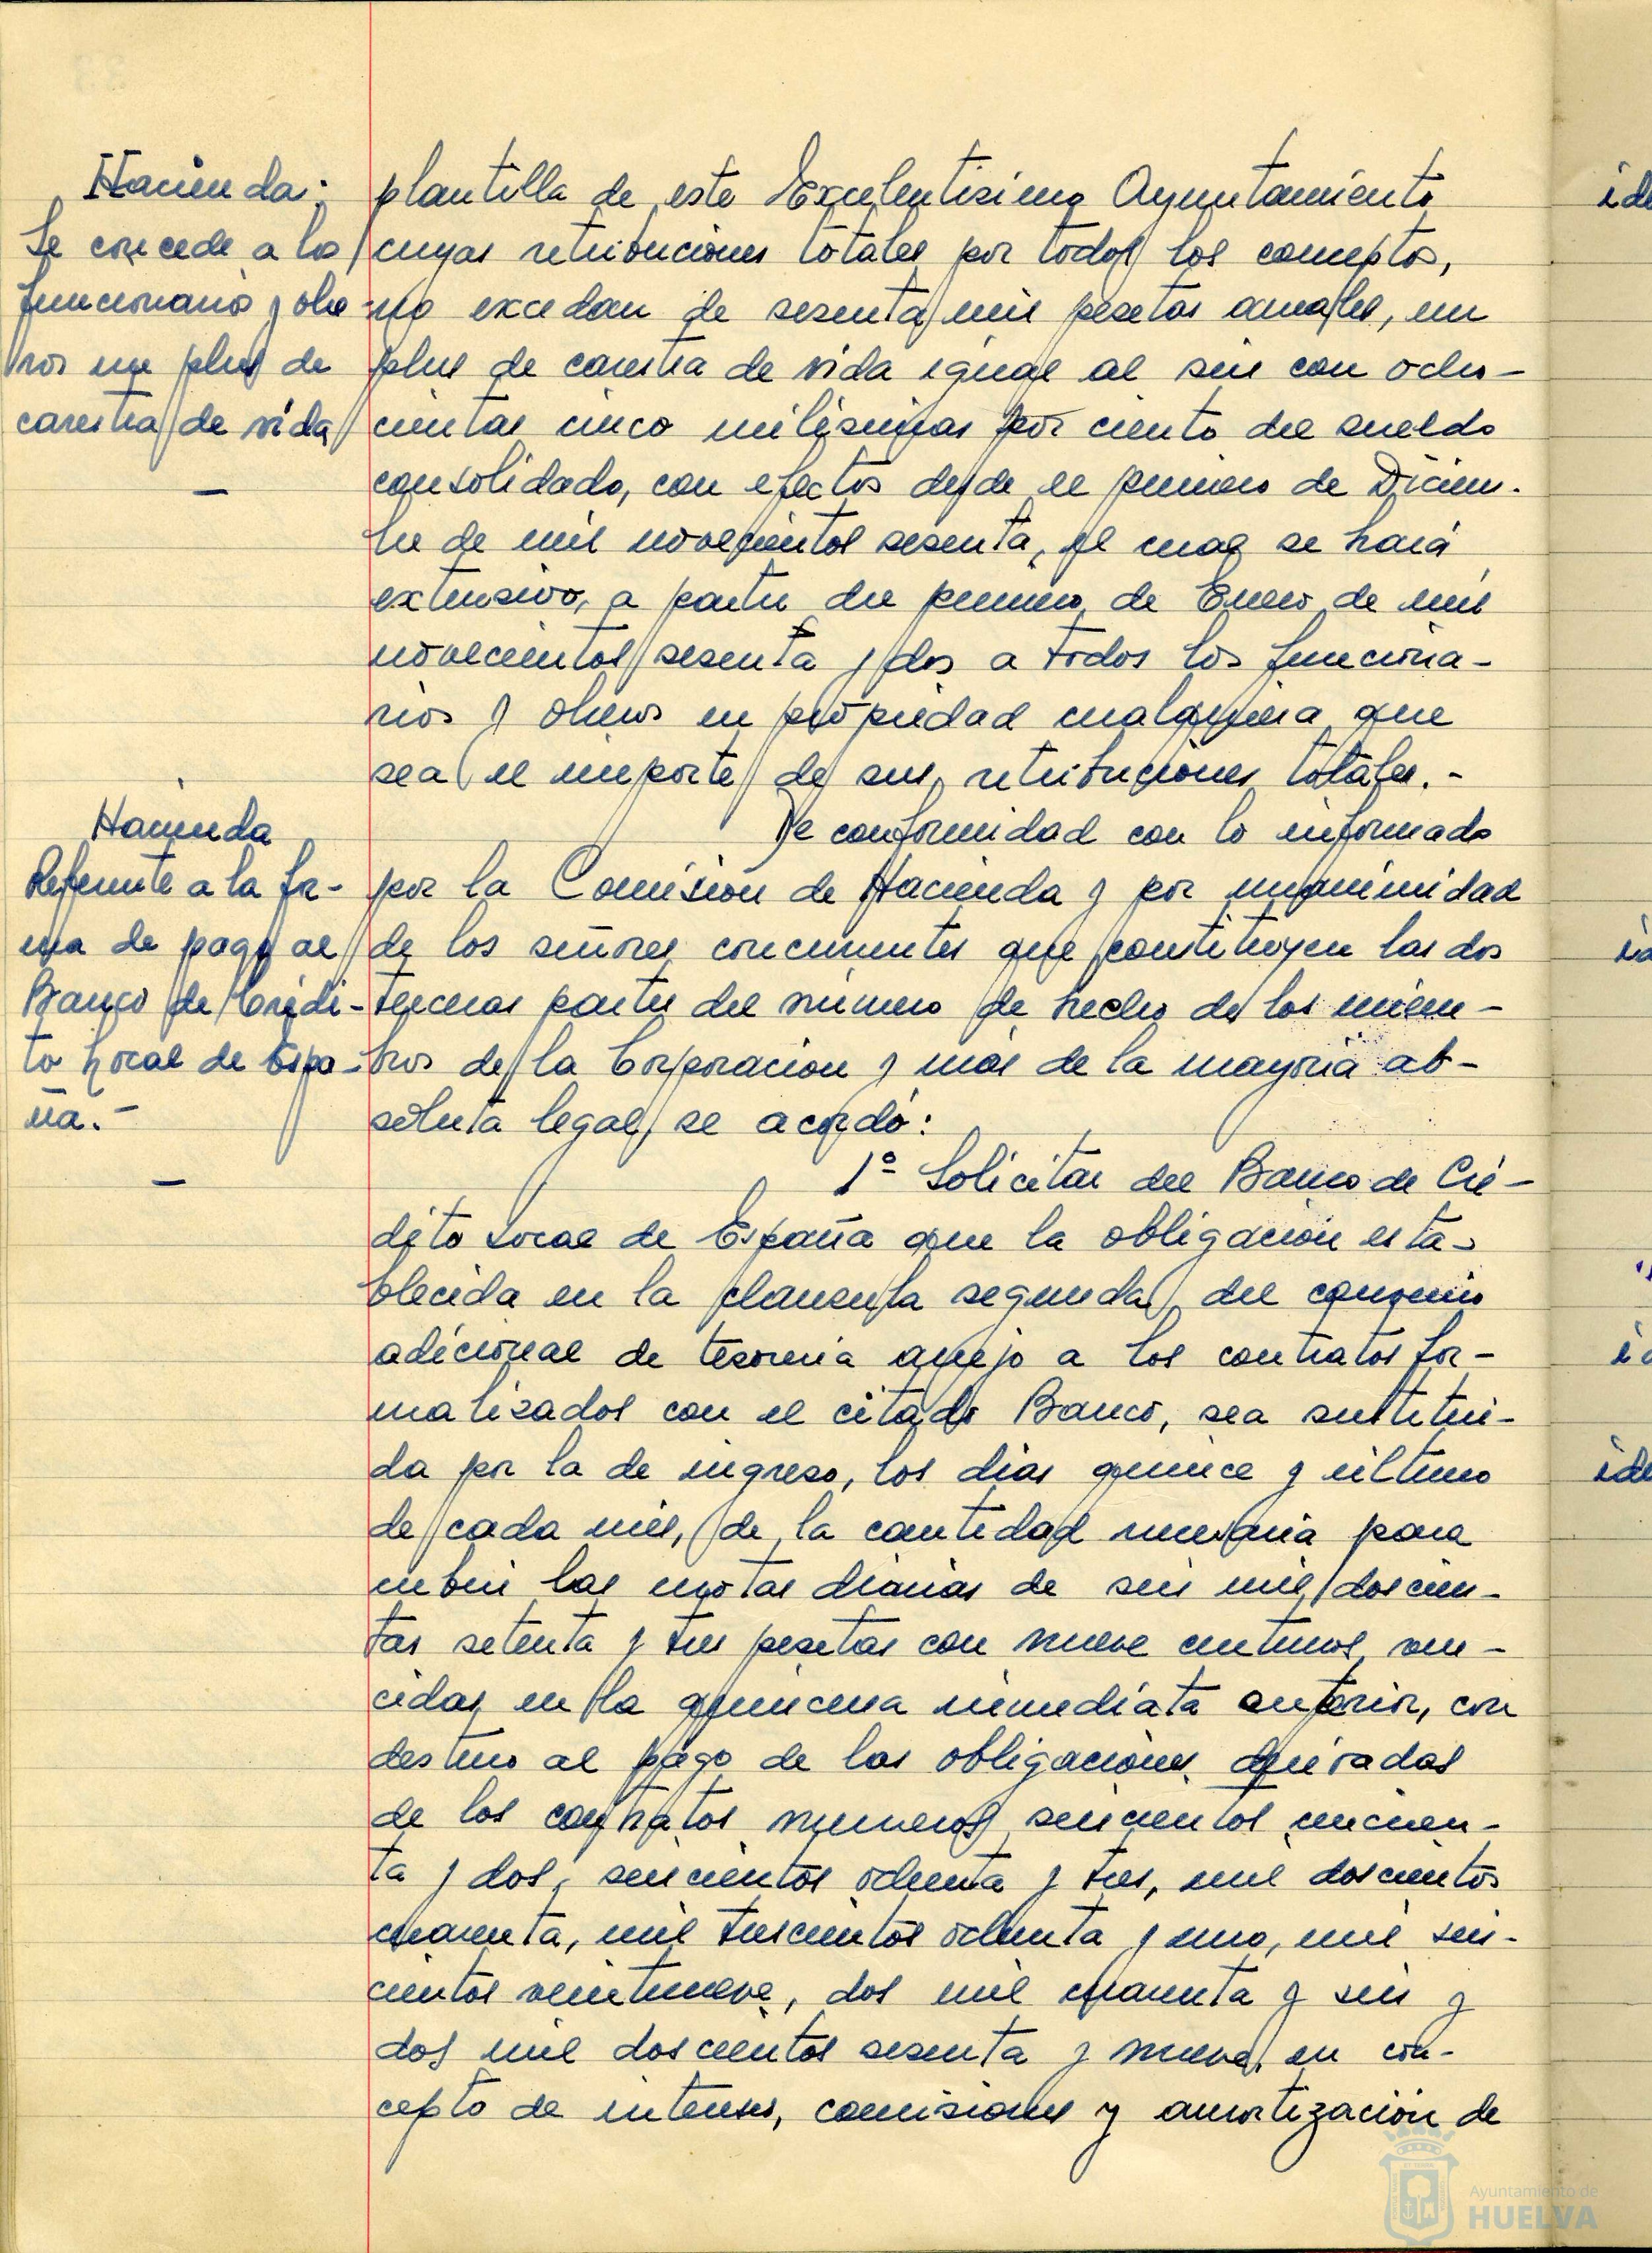 Hacienda:
Se concede a los
funcionarios y obre-
ros un plus de
carestia de vida
—
plantilla de este Excelentisimo Ayuntamiento
cuyas retribuciones totales por todos los conceptos,
no excedan de sesenta mil pesetas anuales, un
plus de carestia de vida igual al seis con ocho-
cientas cinco milésimas por ciento del sueldo
consolidado, con efectos desde el primero de Diciem-
bre de mil novecientos sesenta, el cual se hará
extensivo, a partir del primero de Enero de mil
novecientos sesenta y dos a todos los funciona-
rios y obreros en propiedad cualquiera que
sea el importe de sus retribuciones totales.-
Hacienda
Referente a la for-
ma de pago al
Banco de Crédi-
to Local de Espa-
ña.-
—
De conformidad con lo informado
por la Comisión de Hacienda y por unanimidad
de los señores concurrentes que constituyen las dos
terceras partes del número de hecho de los miem-
bros de la Corporación y más de la mayoría ab-
soluta legal, se acordó:
1º Solicitar del Banco de Cré-
dito Local de España que la obligación esta-
blecida en la clausula segunda del convenio
adicional de tesoreria anejo a los contratos for-
malizados con el citado Banco, sea sustitui-
da por la de ingreso, los dias quince y último
de cada mes, de la cantidad necesaria para
cubrir las cuotas diarias de seis mil doscien-
tas setenta y tres pesetas con nueve centimos, ven-
cidas en la quincena inmediata anterior, con
destino al pago de las obligaciones derivadas
de los contratos numeros seiscientos cincuen-
ta y dos, seiscientos ochenta y tres, mil doscientos
cuarenta, mil trescientos ochenta y uno, mil seis-
cientos veintinueve, dos mil cuarenta y seis y
dos mil doscientos sesenta y nueve, en con-
cepto de intereses, comisiones y amortización de
ide
ida
ide
Ayuntamiento de
HUELVA